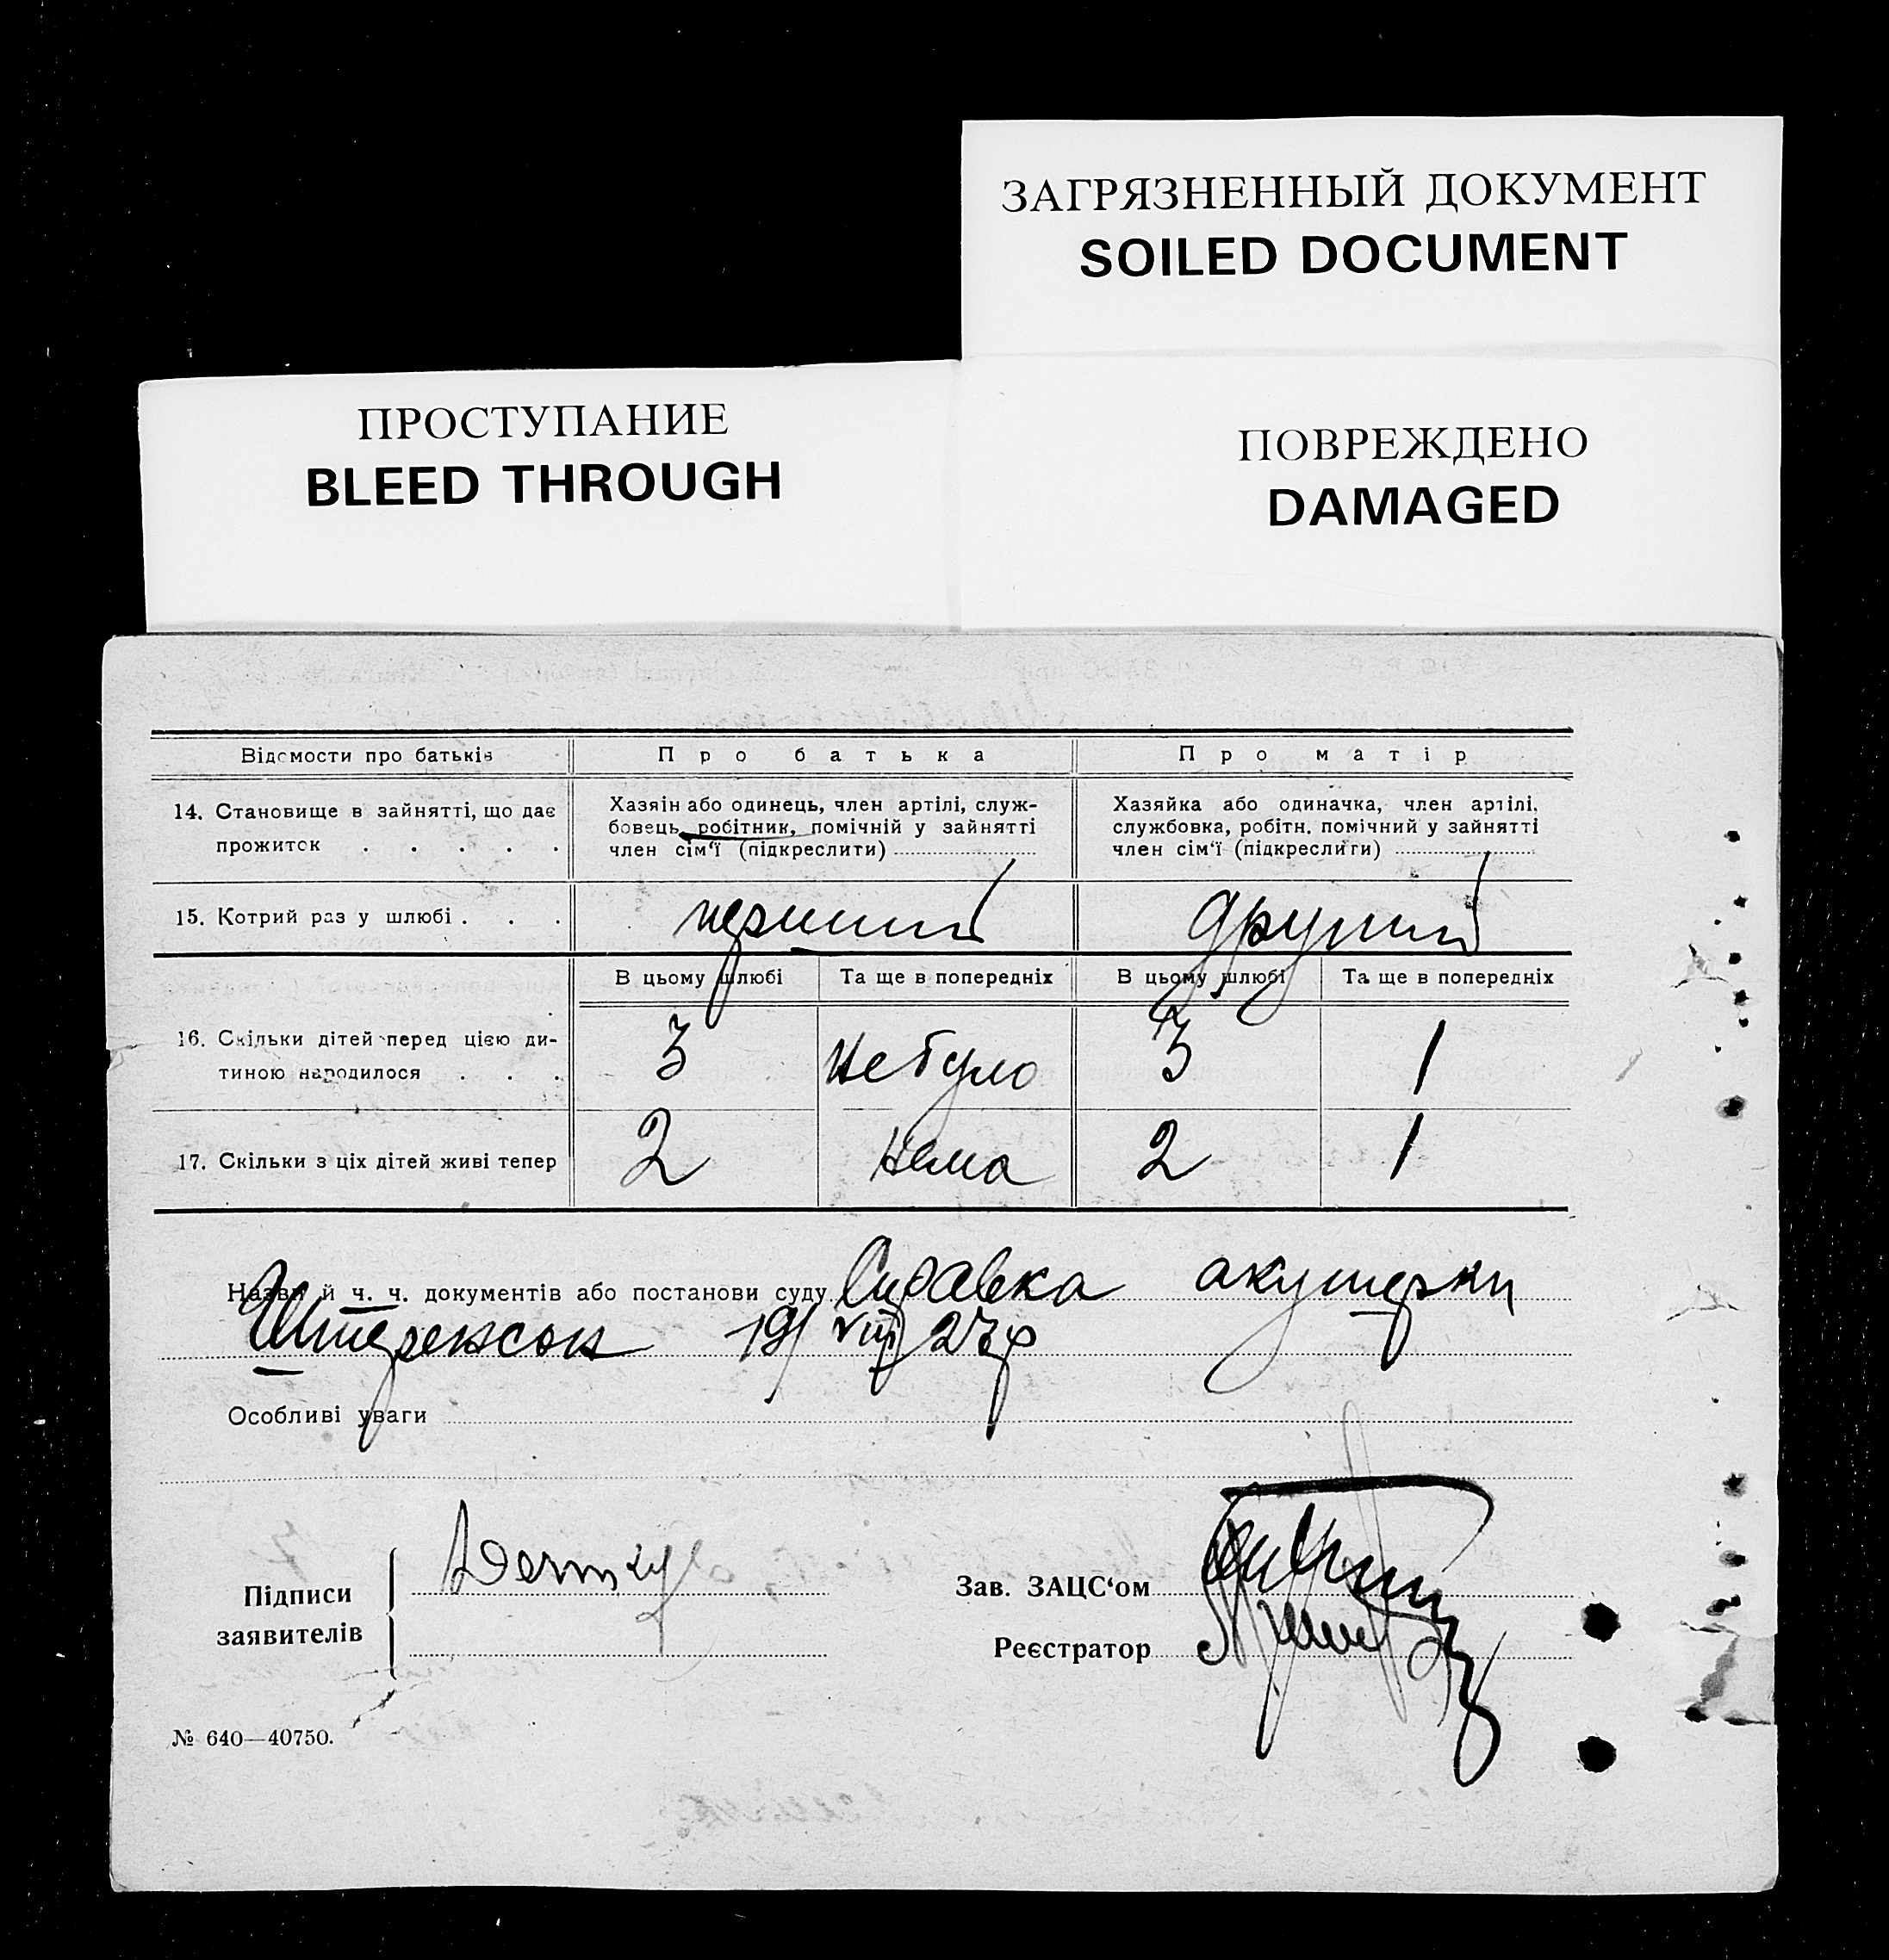 ЗАГРЯЗНЕННЫЙ ДОКУМЕНТ
SOILED DOCUMENT
ПРОСТУПАНИЕ
BLEED THROUGH
ПОВРЕЖДЕНО
DAMAGED
Відомости про батьків Про батька Про матір
14. Становище в зайнятті, що дає
прожиток . . . . .
Хазяін або одинець, член артілі, служ-
бовець, робітник, помічній у зайнятті
член сім'ї (підкреслити)
Хазяйка або одиначка, член артілі,
службовка, робітн. помічний у зайнятті
член сім'ї (підкреслити)
15. Котрий раз у шлюбі . . . перший другий
В цьому шлюбі Та ще в попередніх В цьому шлюбі Та ще в попередніх
16. Скільки дітей перед цією ди-
тиною народилося . . . 3 не було 3 1
17. Скільки з ціх дітей живі тепер 2 нема 2 1
Назви й ч. ч. документів або постанови суду Справка акушерки
19/VIII 27р
Особливі уваги
Підписи
заявителів
Зав. ЗАЦС'ом
Реєстратор
№ 640—40750.